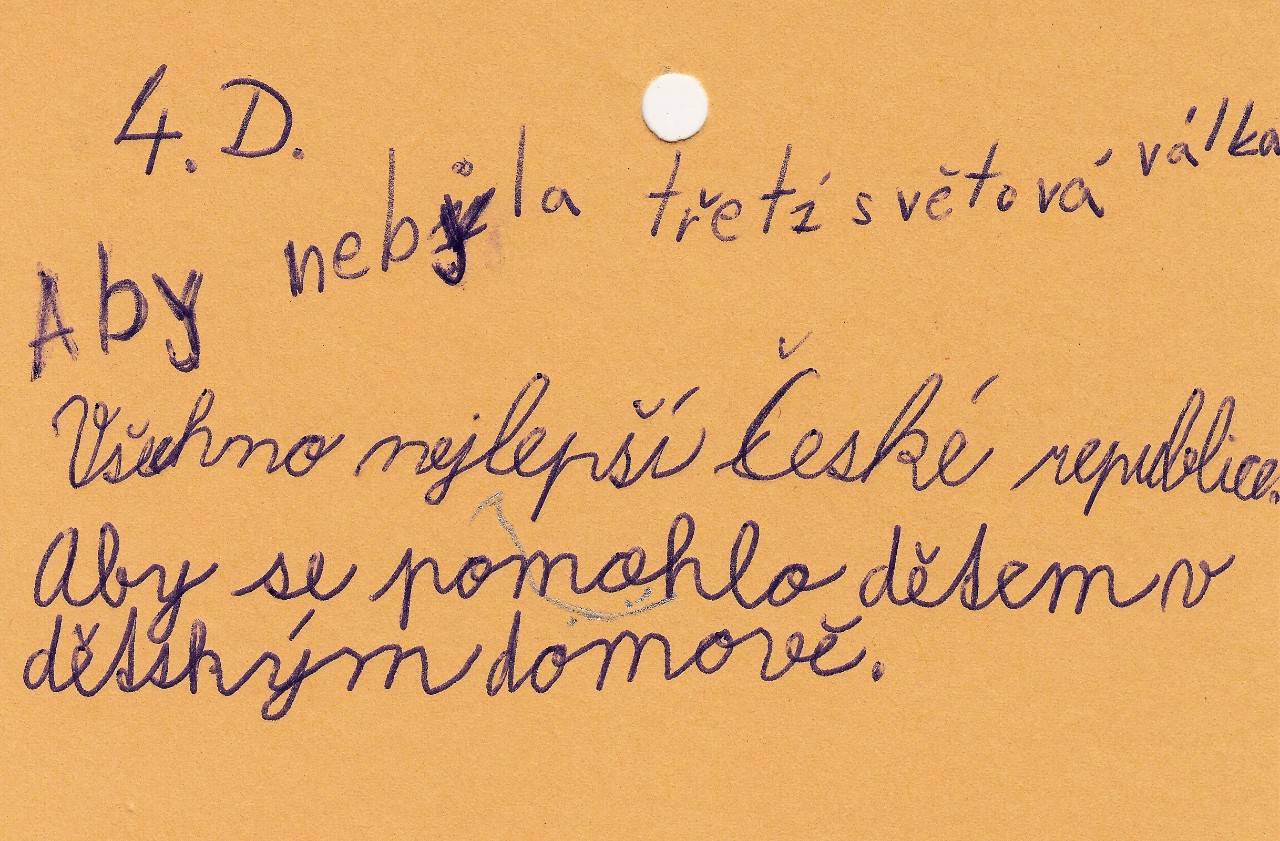 4. D.
Aby nebyla třetí světová válka
Všechno nejlepší České republice.
Aby se pomohlo dětem v
dětským domově.